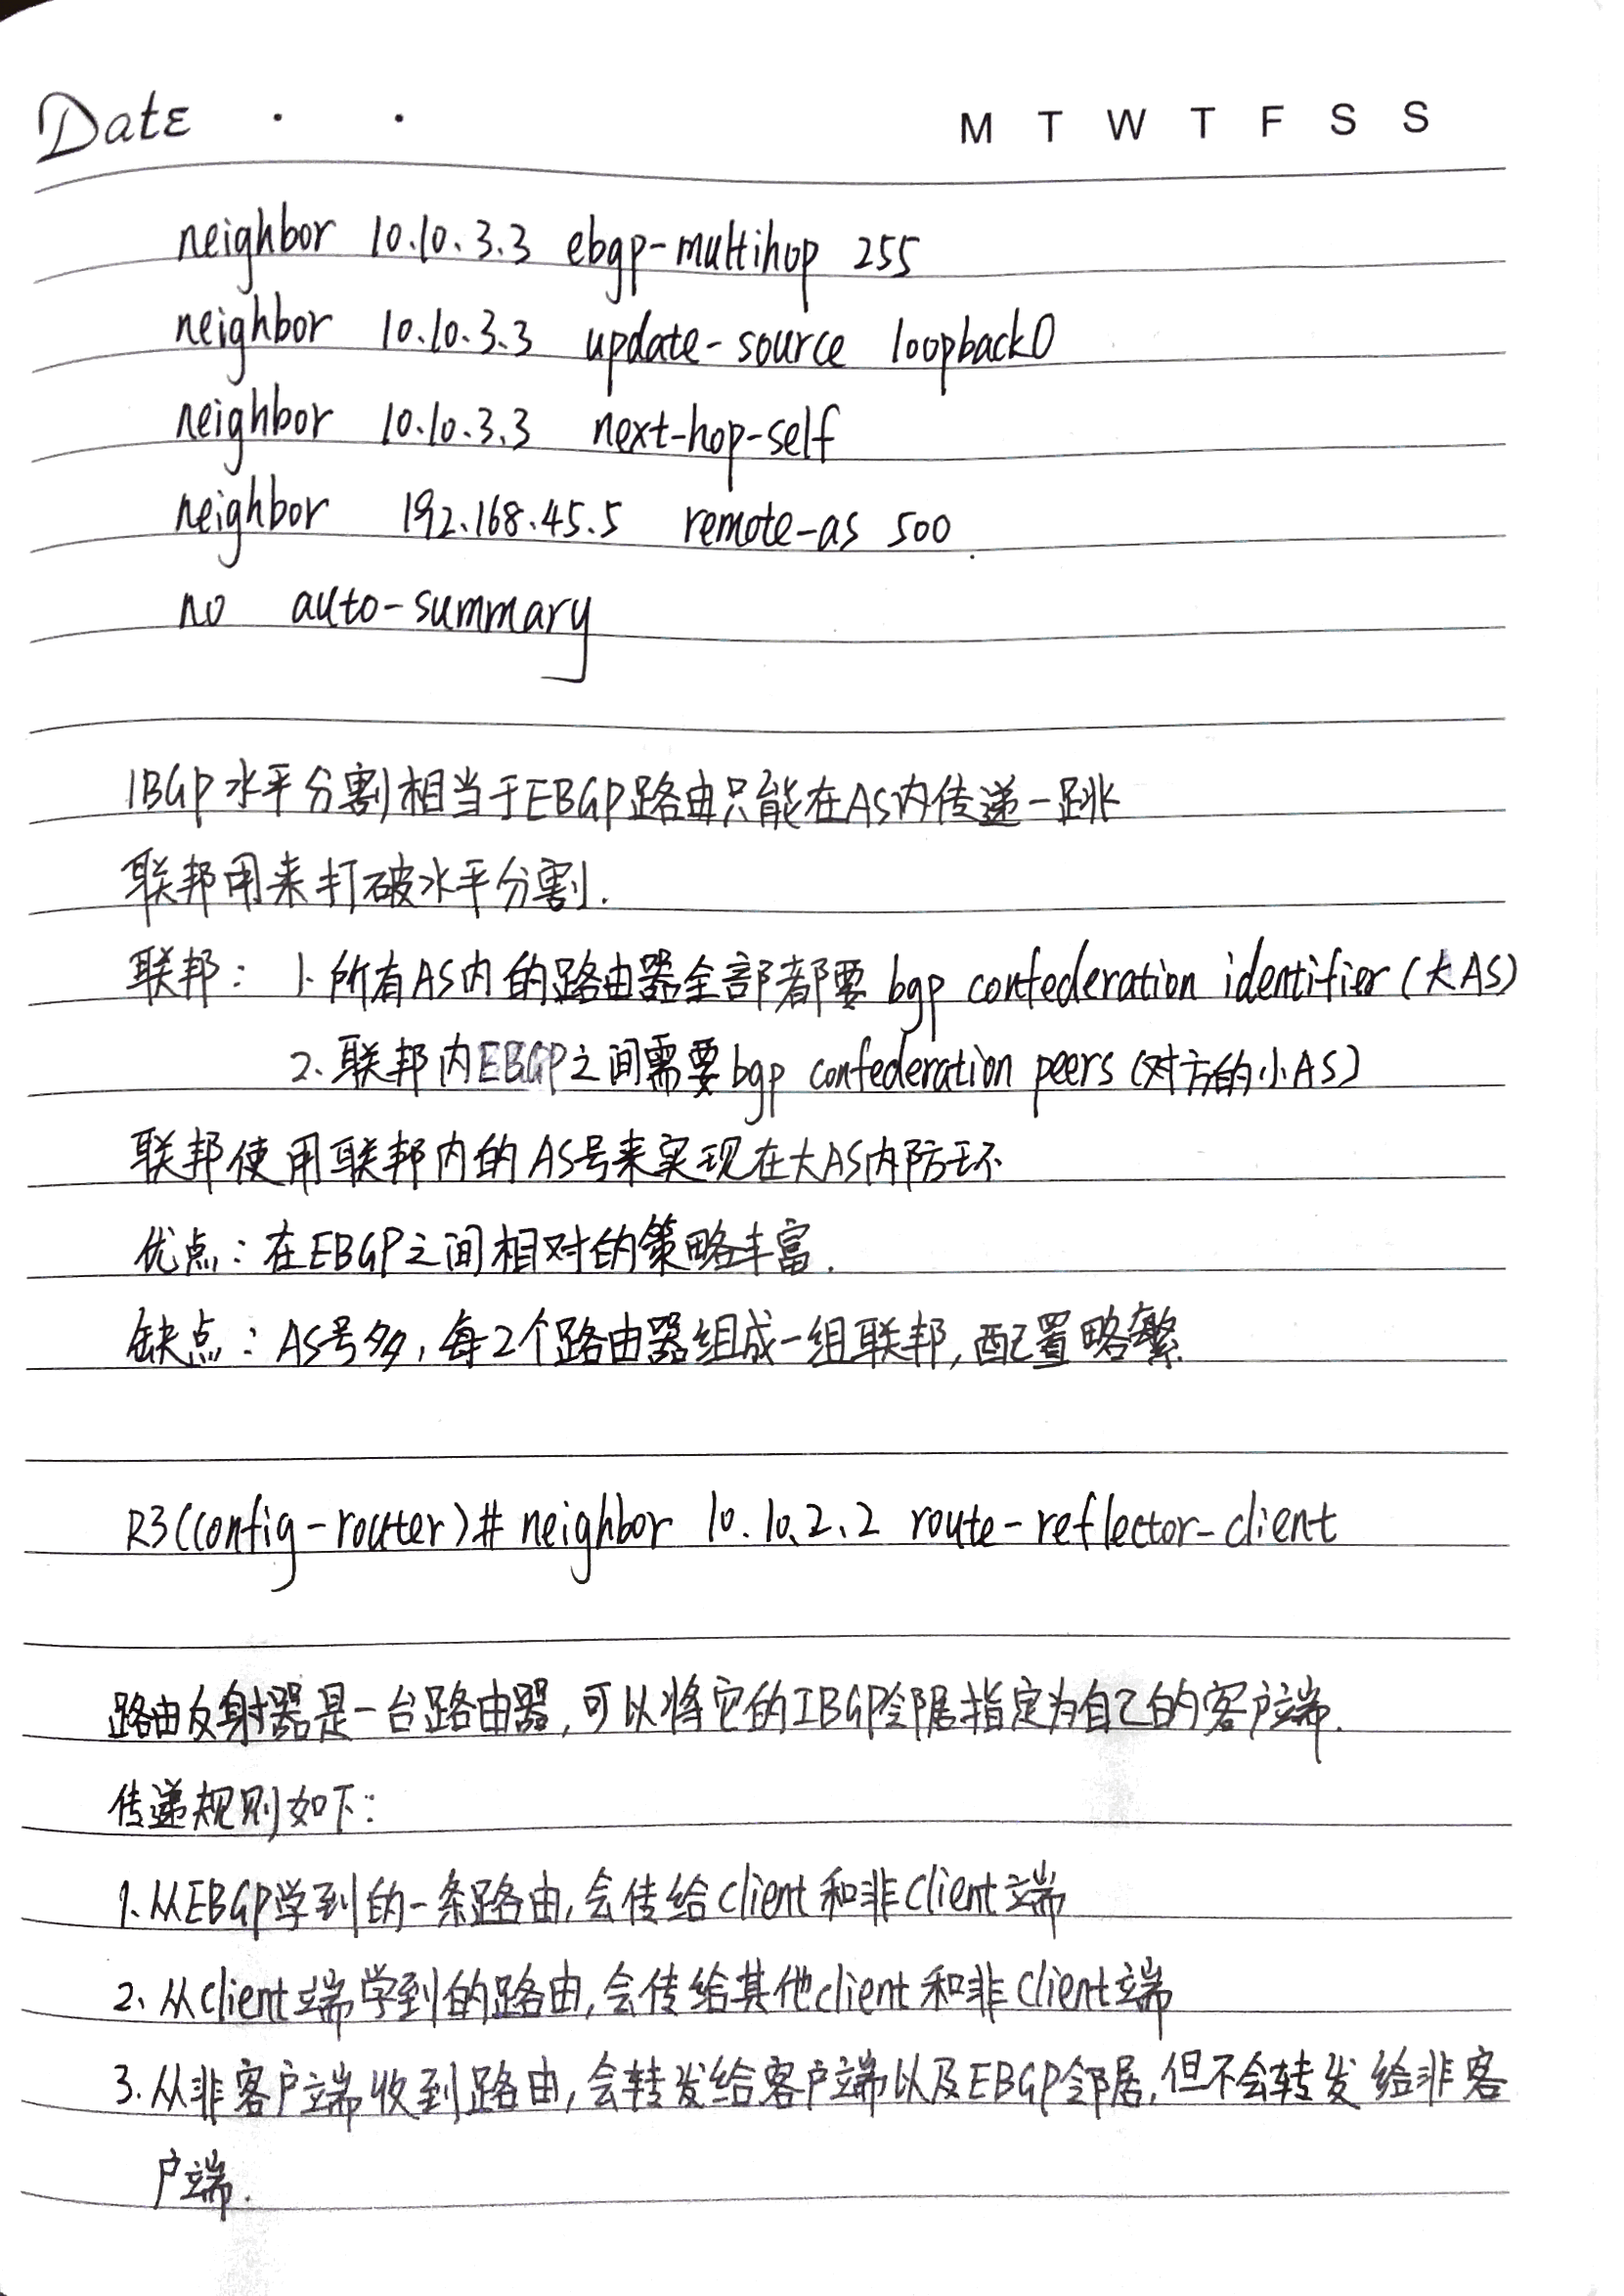 Date . .
M T W T F S S
neighbor 10.10.3.3 ebgp-multihop 255
neighbor 10.10.3.3 update-source loopback0
neighbor 10.10.3.3 next-hop-self
neighbor 192.168.45.5 remote-as 500
no auto-summary
IBGP水平分割相当于EBGP路由只能在AS内传递一跳
联邦用来打破水平分割.
联邦: 1.所有AS内的路由器全部都要 bgp confederation identifier(大AS)
2.联邦内EBGP之间需要bgp confederation peers(对方的小AS)
联邦使用联邦内的AS号来实现在大AS内防环
优点:在EBGP之间相对的策略丰富.
缺点:AS号多,每2个路由器组成一组联邦,配置略繁.
R3(config-router)# neighbor 10.10.2.2 route-reflector-client
路由反射器是一台路由器,可以将它的IBGP邻居指定为自己的客户端.
传递规则如下:
1.从EBGP学到的一条路由,会传给client和非client端
2、从client端学到的路由,会传给其他client和非client端
3.从非客户端收到路由,会转发给客户端以及EBGP邻居,但不会转发给非客
户端.